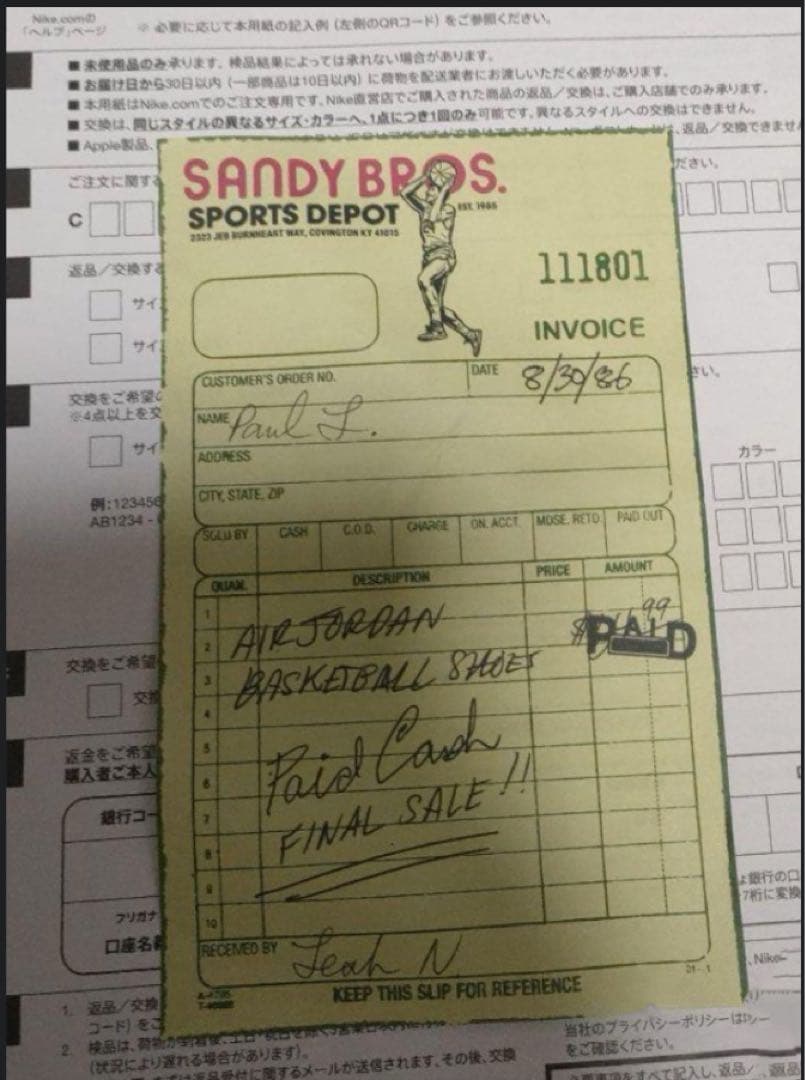 Nike.comの
「ヘルプ」ページ
※ 必要に応じて本用紙の記入例（左側のQRコード）をご参照ください。
■ 未使用品のみ承ります。検品結果によっては承れない場合があります。
■ お届け日から30日以内（一部商品は10日以内）に荷物を配送業者にお渡しいただく必要があります。
■ 本用紙はNike.comでのご注文専用です。Nike直営店でご購入された商品の返品／交換は、ご購入店舗でのみ承ります。
■ 交換は、同じスタイルの異なるサイズ・カラーへ、1点につき1回のみ可能です。異なるスタイルへの交換はできません。
■ Apple製品、
返品／交換できませ
ご注文に関する
ださい。
C
返品／交換する
サイ
サイ
交換をご希望の
※4点以上を交
さい。
サイ
カラー
例:123456
AB1234 -
交換をご希望
交換
返金をご希望
購入者ご本人
銀行コー
フリガナ
口座名義
SANDY BROS.
SPORTS DEPOT
EST. 1985
2323 JEB BURNHEART WAY, COVINGTON KY 41015
111801
INVOICE
CUSTOMER'S ORDER NO.
DATE 8/30/86
NAME Paul L.
ADDRESS
CITY, STATE, ZIP
SOLD BY CASH C.O.D. CHARGE ON. ACCT. MDSE. RETD. PAID OUT
QUAN. DESCRIPTION PRICE AMOUNT
1
2 AIR JORDAN $ 99
PAID
3 BASKETBALL SHOES
4
5
6 Paid Cash
7
8 FINAL SALE!!
9
10
RECEIVED BY Leah N
KEEP THIS SLIP FOR REFERENCE
銀行の口
7桁に変換
、Nike
1. 返品／交換
コード）をご
2. 検品は、荷物が到着後、土日・祝日を除く
（状況により遅れる場合があります）。
返品受付に関するメールが送信されます。その後、交換
当社のプライバシーポリシーは
をご確認ください。
必要事項をすべて記入し、返品／